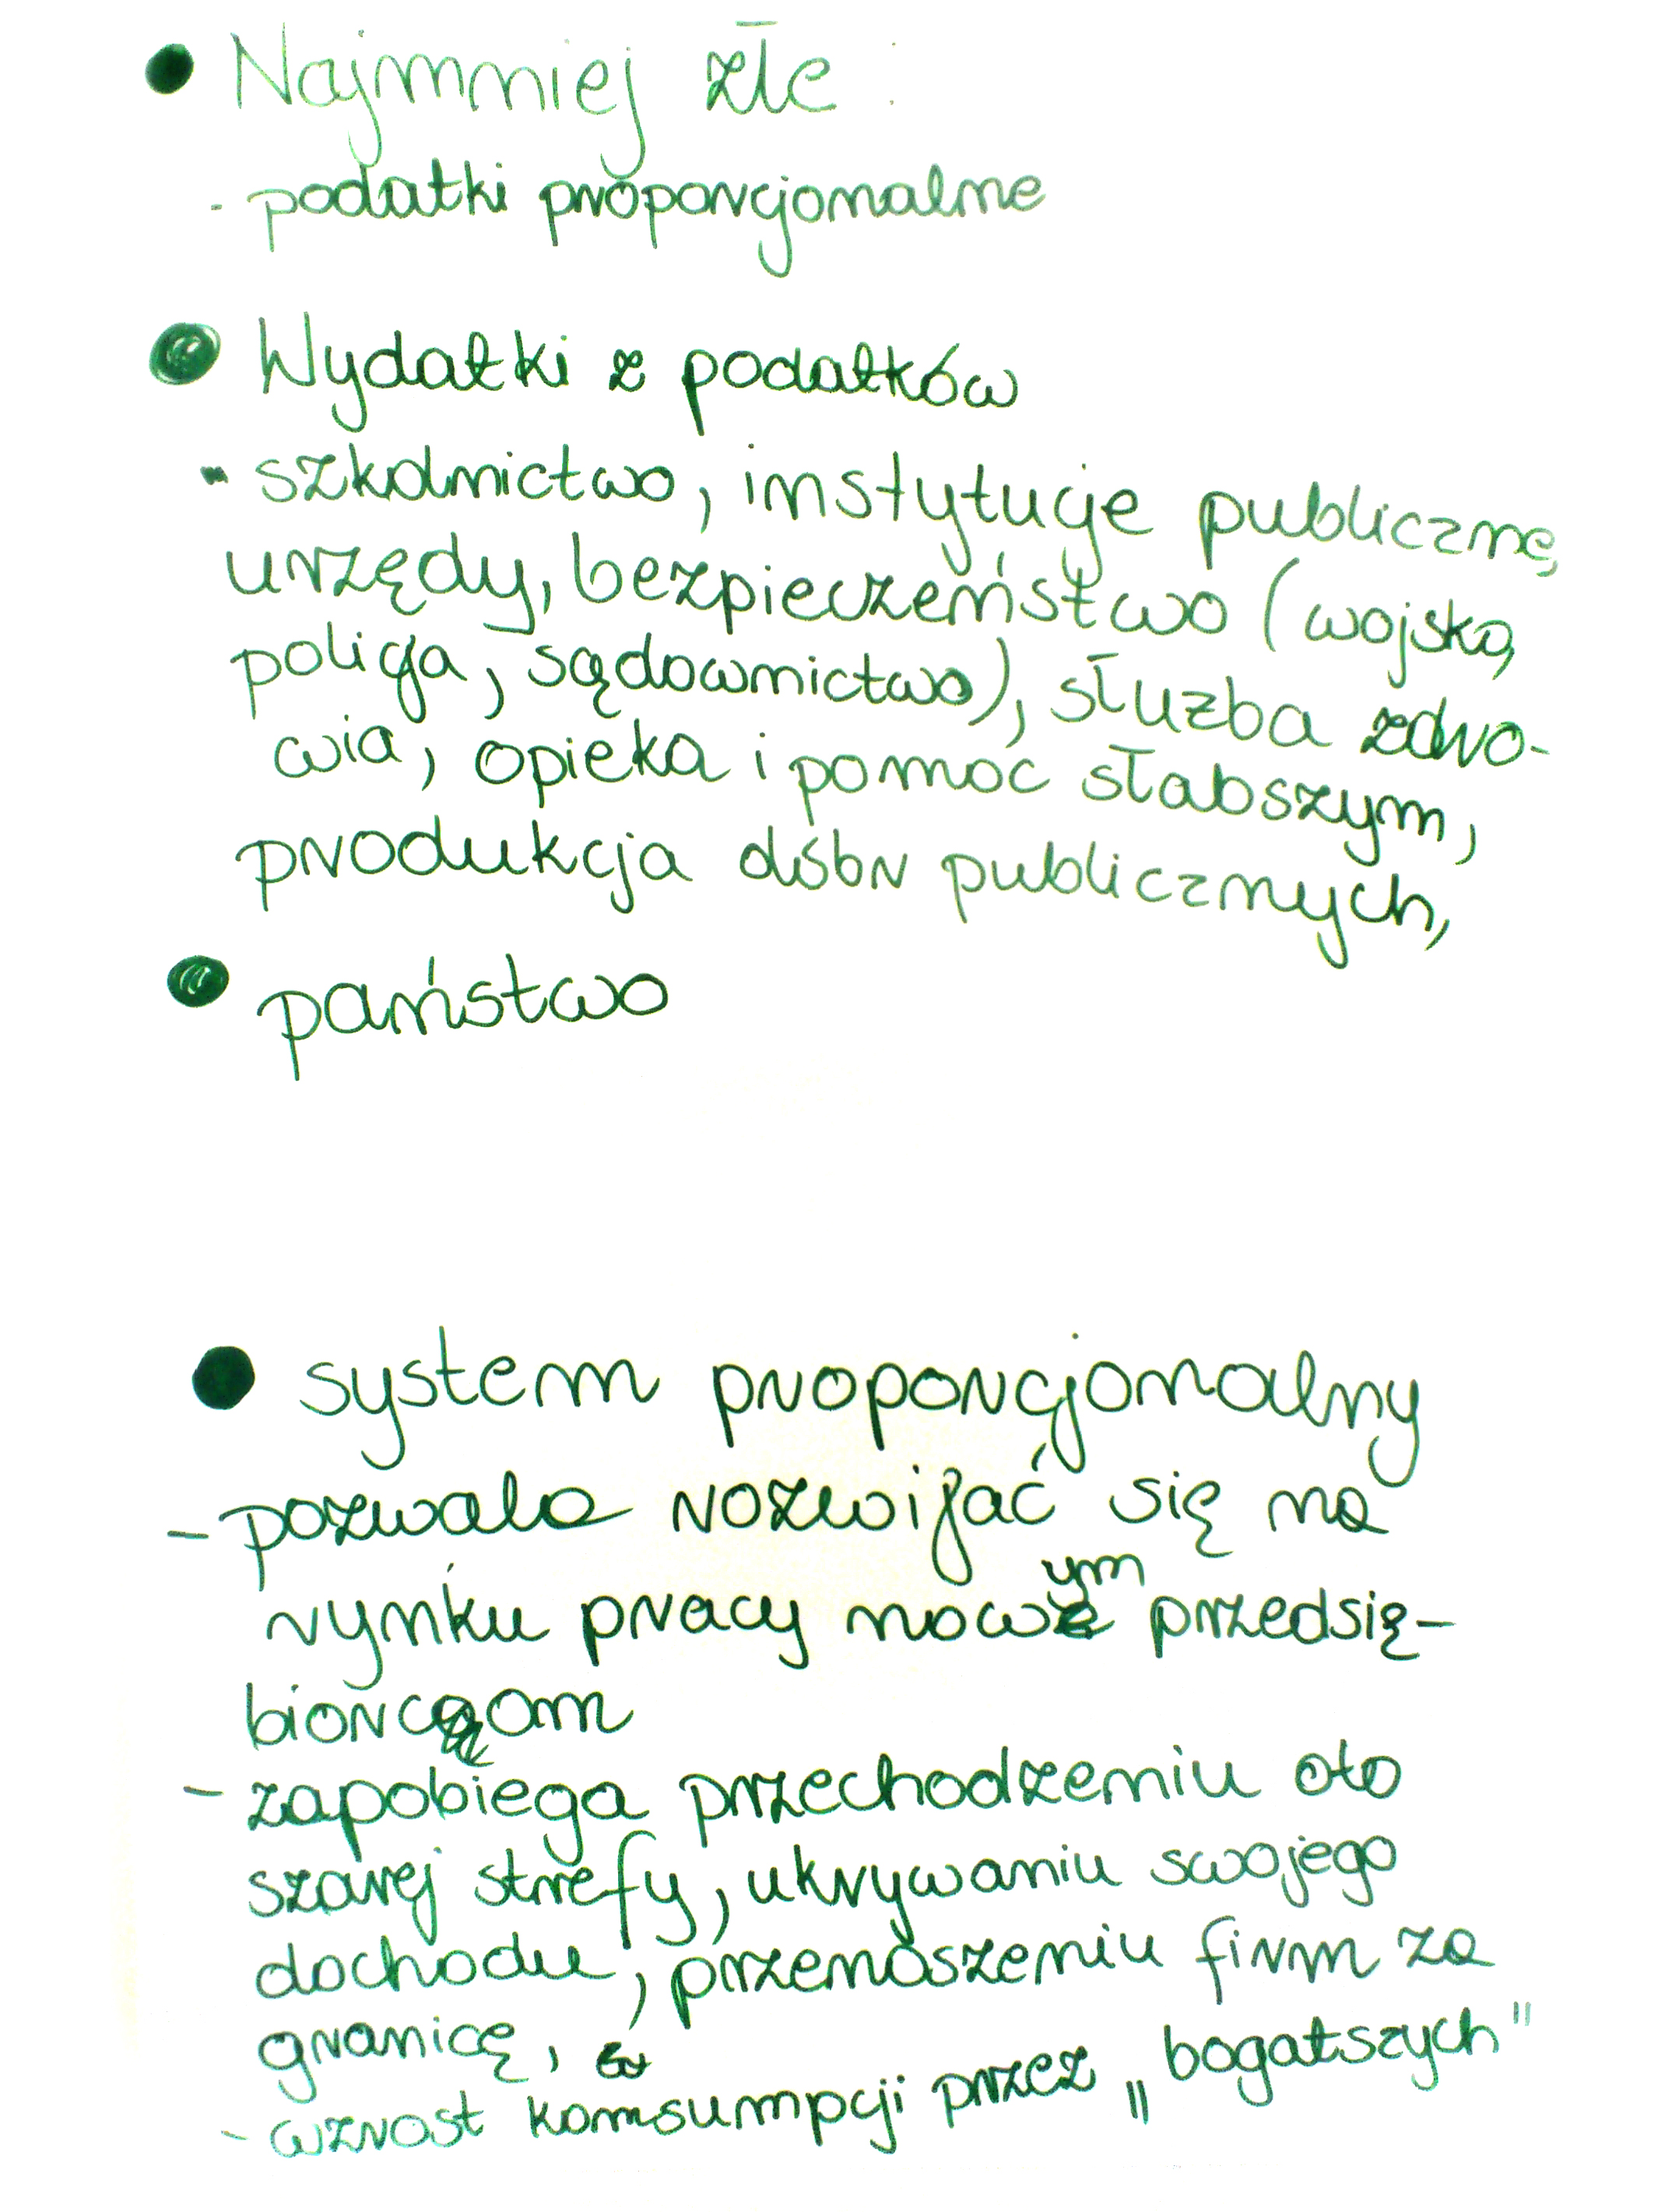 ● Najmniej złe :
- podatki proporcjonalne
● Wydatki z podatków
- szkolnictwo, instytucje publiczne,
urzędy, bezpieczeństwo (wojsko,
policja, sądownictwo), służba zdro-
wia, opieka i pomoc słabszym,
produkcja dóbr publicznych,
● państwo
● system proporcjonalny
- pozwala rozwijać się na
rynku pracy nowym przedsię-
biorcom
- zapobiega przechodzeniu do
szarej strefy, ukrywaniu swojego
dochodu, przenoszeniu firm za
granicę,
- wzrost konsumpcji przez „bogatszych"